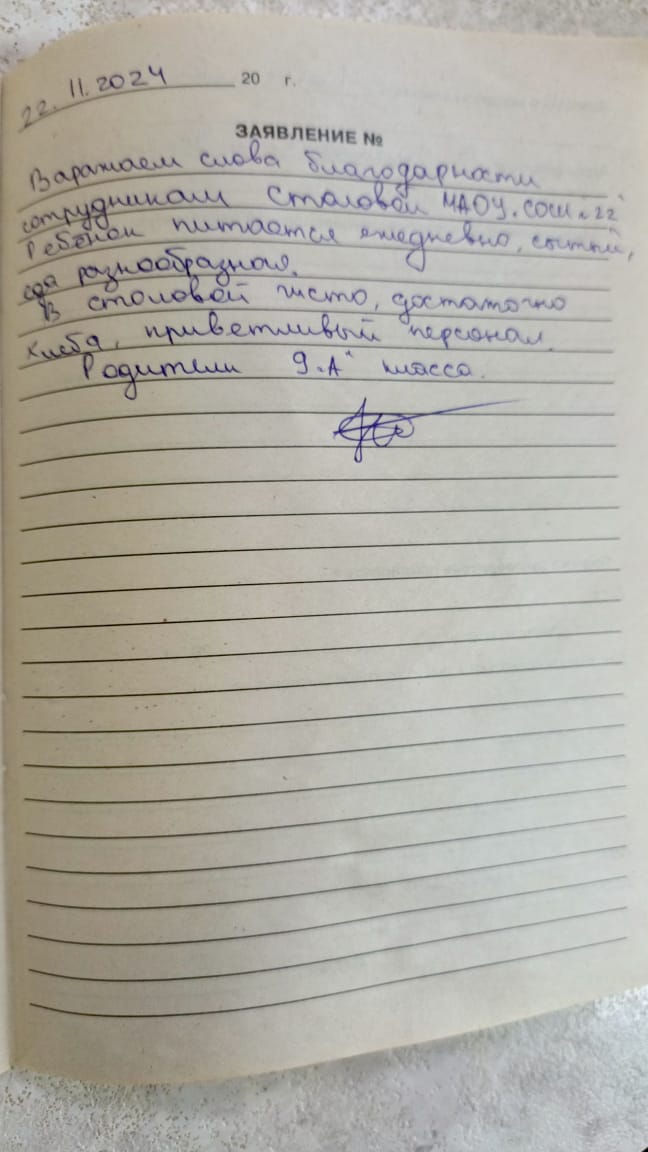 22.11.2024 20 г.
ЗАЯВЛЕНИЕ №
Варажаем слова благодарности
сотрудникам столовой МАОУ „СОШ № 22"
Ребёнок питается ежедневно, сытный,
еда разнообразная.
В столовой чисто, достаточно
хлеба, приветливый персонал.
Родители 9 „А" класса.